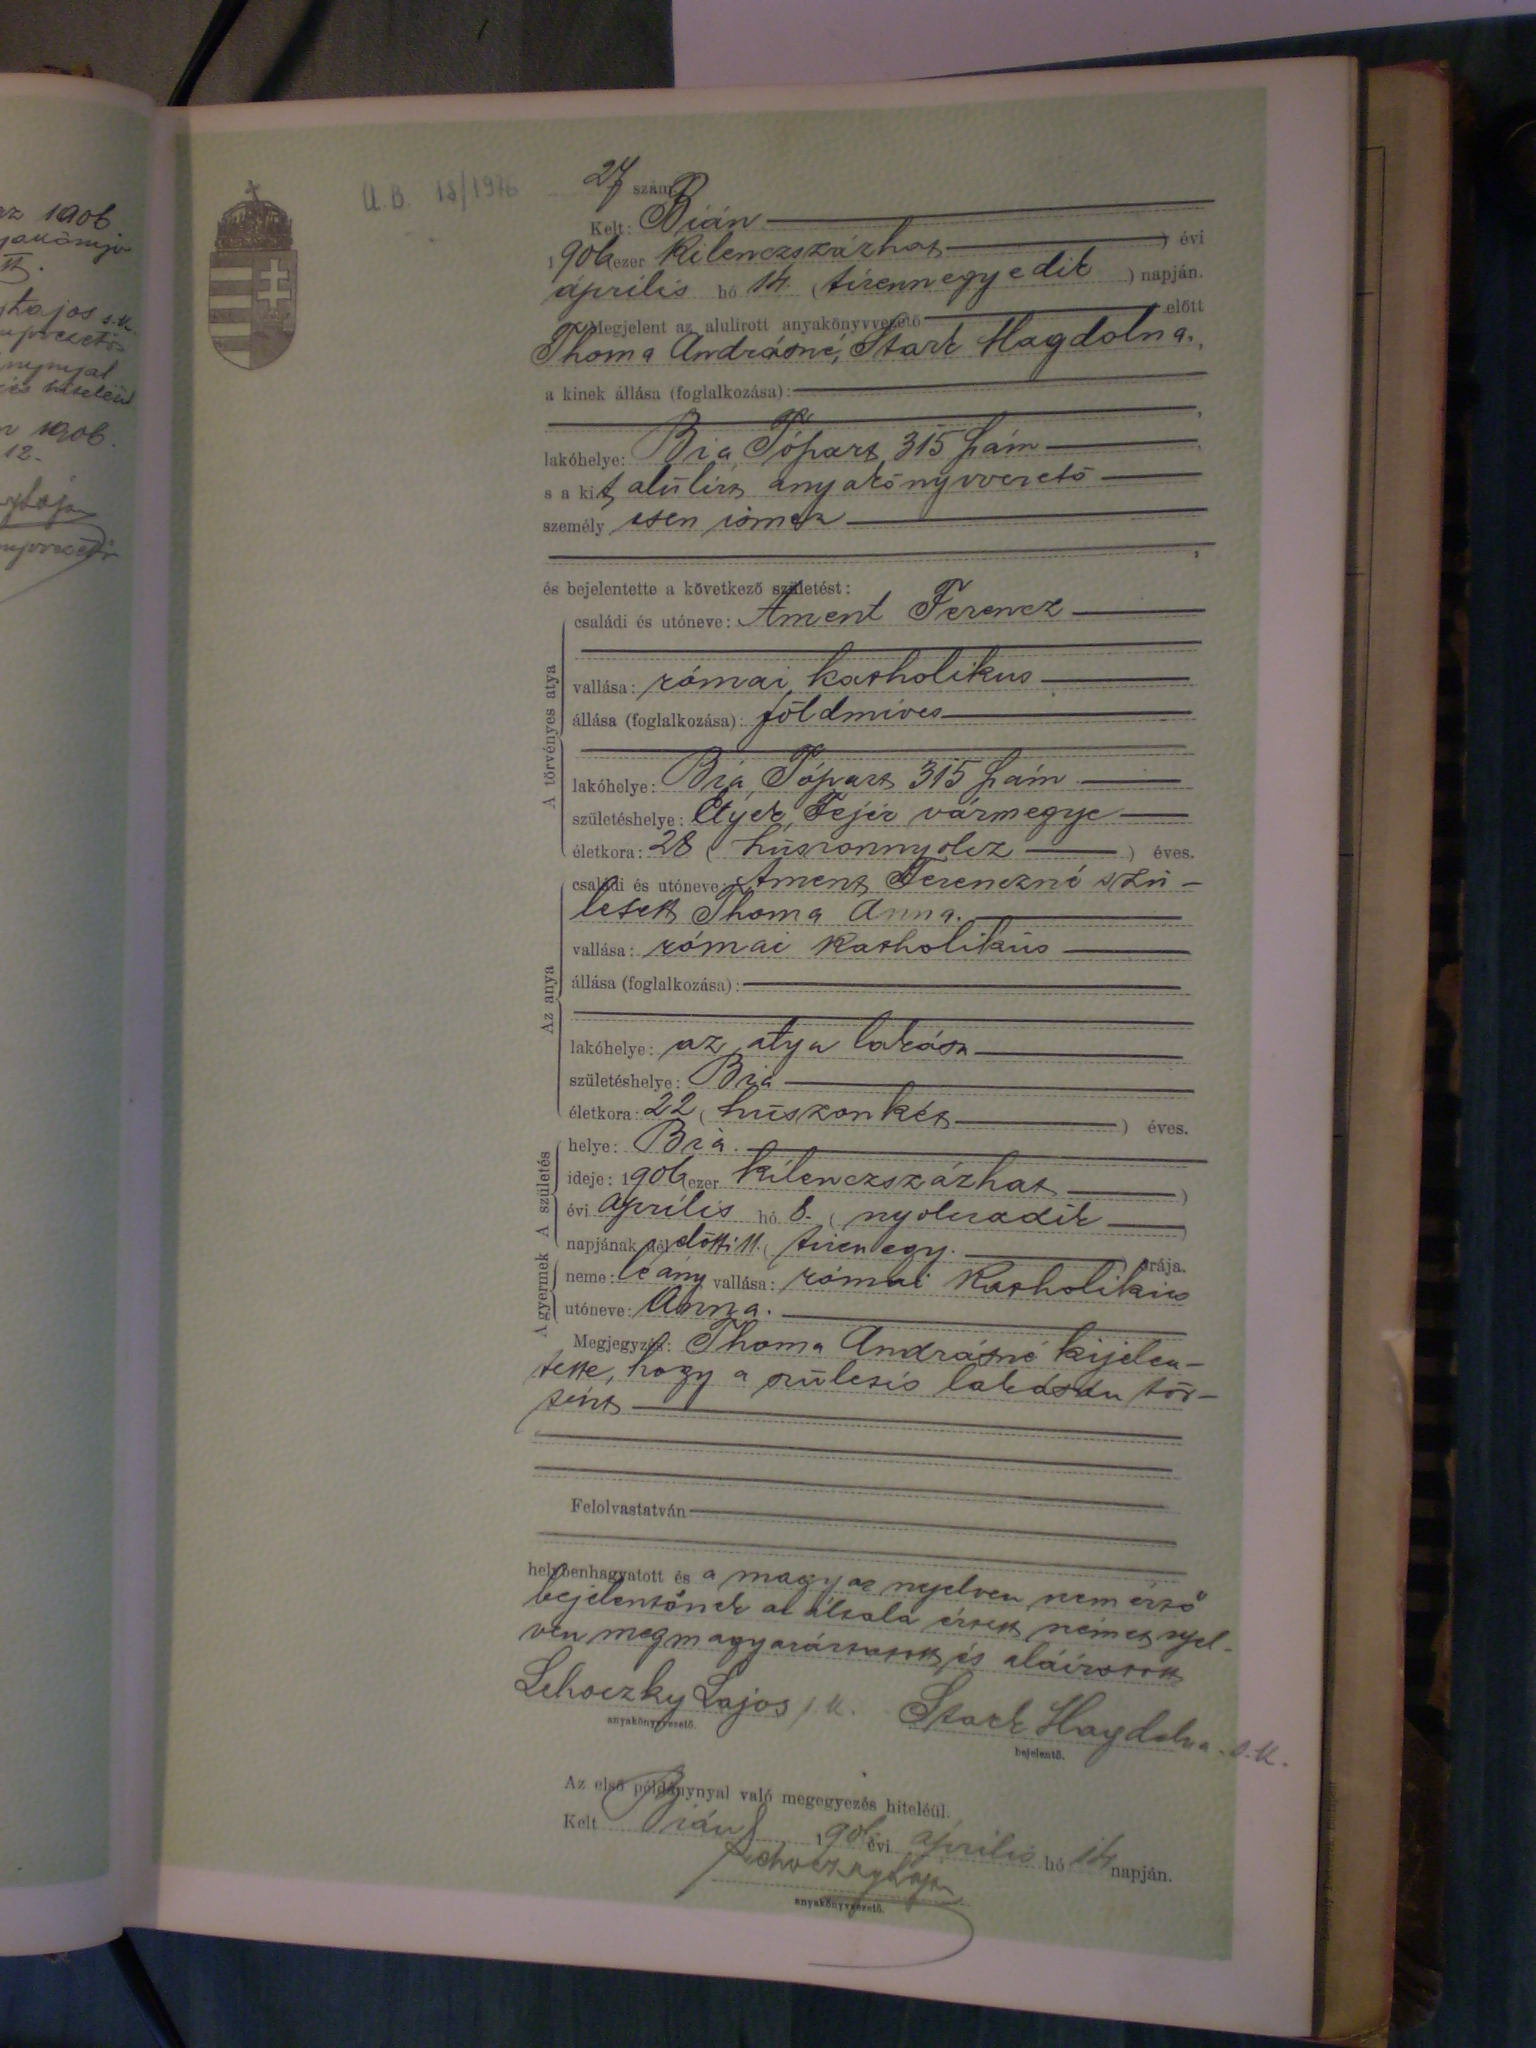 Ü.B. 18/1976
27 szám
Kelt: Bián
1906 ezer kilenczszázhat ) évi
április hó 14. (tizennegyedik ) napján.
Megjelent az alulirott anyakönyvvezető előtt
Thoma Andrásné, Stark Magdolna,
a kinek állása (foglalkozása):
lakóhelye: Bia, Tópart 315 szám
s a kit alulirt anyakönyvvezető
személyesen ismer
és bejelentette a következő születést:
A törvényes atya
családi és utóneve: Ament Ferencz
vallása: római katholikus
állása (foglalkozása): földmives
lakóhelye: Bia, Tópart 315 szám
születéshelye: Etyek, Fejér vármegye
életkora: 28 (huszonnyolcz ) éves.
Az anya
családi és utóneve: Ament Ferenczné szü-
letett Thoma Anna.
vallása: római katholikus
állása (foglalkozása):
lakóhelye: az atya lakása
születéshelye: Bia
életkora: 22 (huszonkét ) éves.
A születés
helye: Bia.
ideje: 1906 ezer kilenczszázhat )
évi április hó 8. (nyolczadik )
napjának délelőtti 11. (tizenegy. órája.
A gyermek
neme: leány vallása: római katholikus
utóneve: Anna.
Megjegyzés: Thoma Andrásné kijelen-
tette, hogy a születés lakásán tör-
tént
Felolvastatván
helybenhagyatott és a magyar nyelven nem értő
bejelentőnek az általa értett német nyel-
ven megmagyaráztatott és aláiratott
Lehoczky Lajos s.k. Stark Magdolna s.k.
anyakönyvvezető. bejelentő.
Az első példánynyal való megegyezés hiteléül.
Kelt Bián, 1906 évi április hó 14 napján.
Lehoczky Lajos
anyakönyvvezető.